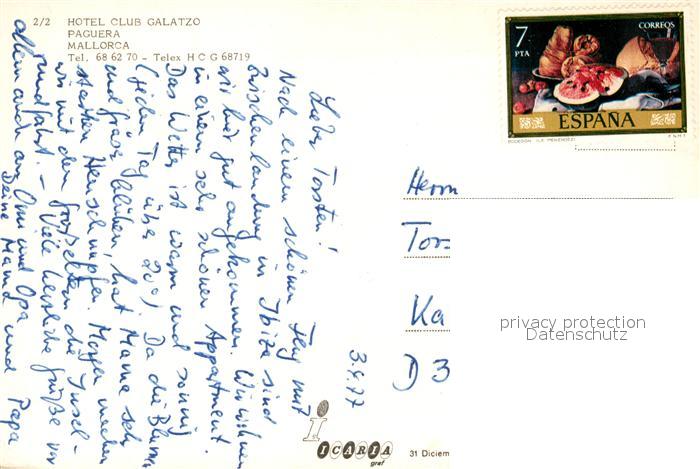 2/2 HOTEL CLUB GALATZO
PAGUERA
MALLORCA
Tel. 68 62 70 - Telex H C G 68719
7
PTA
CORREOS
ESPAÑA
BODEGON (L.E. MENENDEZ)
F.N.M.T.
3.4.77
Lieber Torsten!
Nach einem schönen Flug mit
Zwischenlandung in Ibiza sind
wir hier gut angekommen. Wir wohnen
in einem sehr schönen Appartment.
Das Wetter ist warm und sonnig
(jeden Tag über 20°). Da die Blumen
und Gräser blühen, hat Mama sehr
starken Heuschnupfen. Morgen machen
wir mit den Großeltern die Insel-
rundfahrt. - Viele herzliche Grüße von
allem auch an Omi und Opa
Deine Mama und Papa
Herrn
Tor
Ka
D 3
privacy protection
Datenschutz
i
ICARIA
graf
31 Diciem